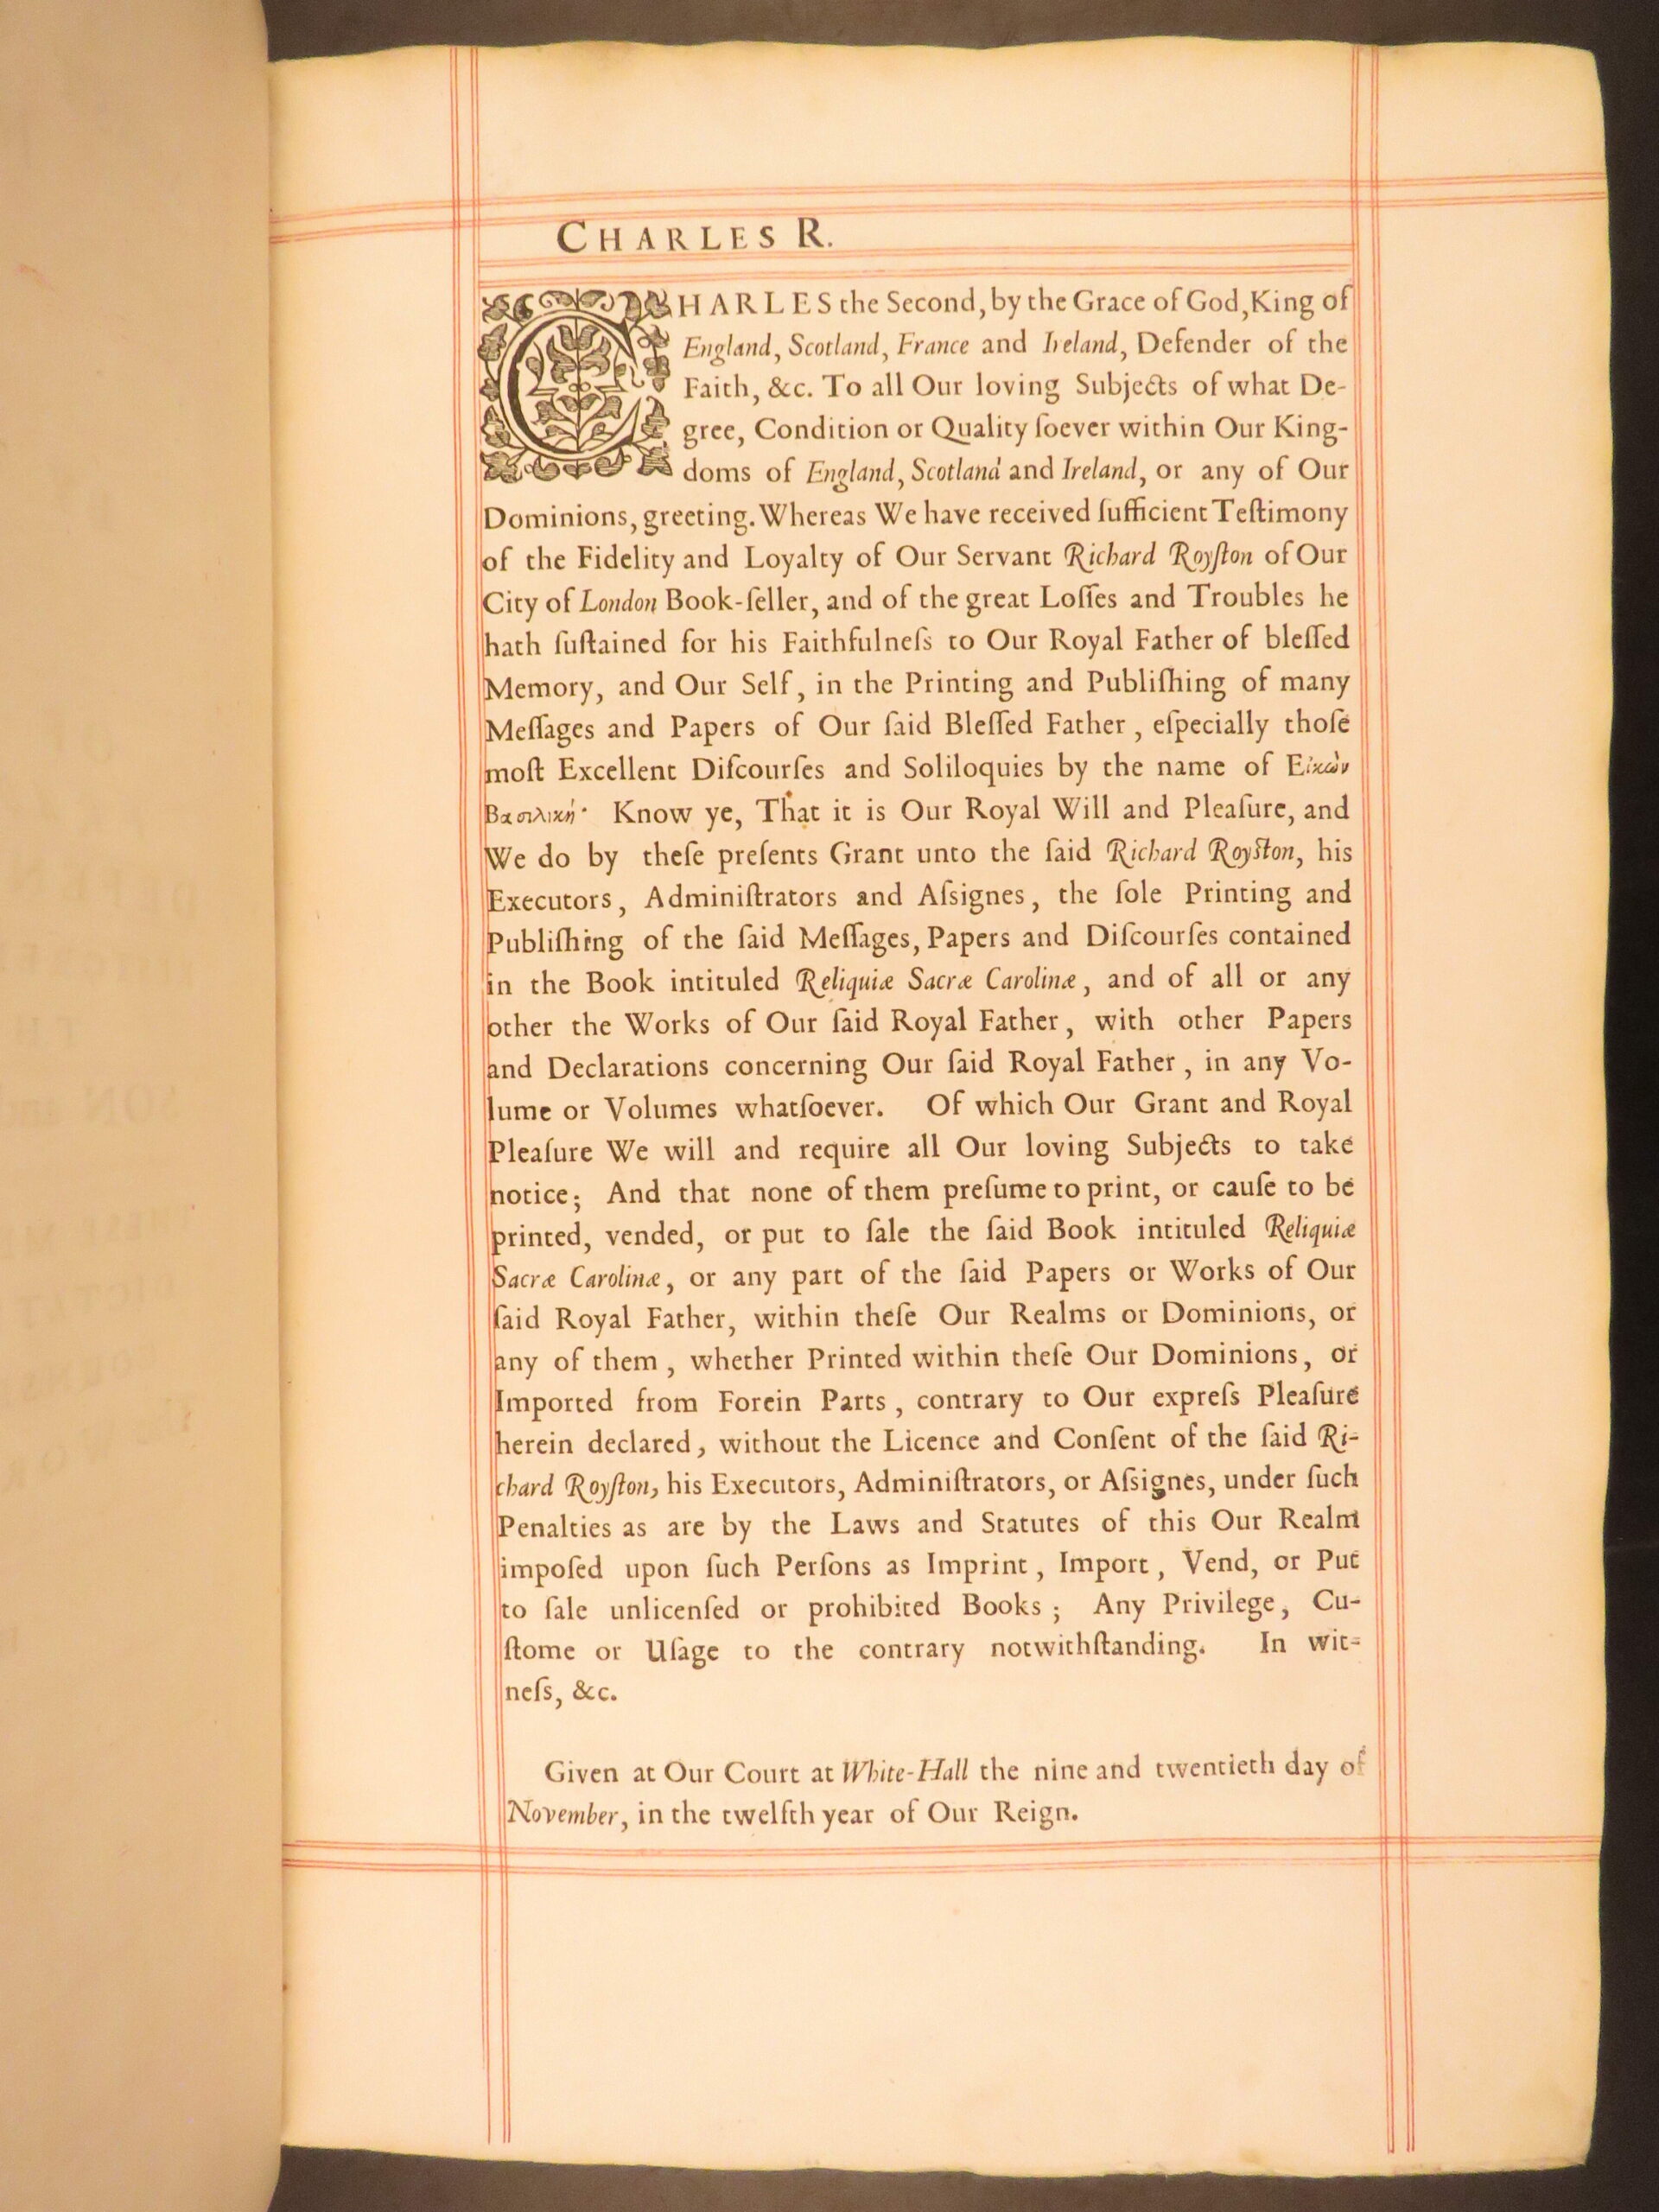 CHARLES R.
CHARLES the Second, by the Grace of God, King of
England, Scotland, France and Ireland, Defender of the
Faith, &c. To all Our loving Subjects of what De-
gree, Condition or Quality ſoever within Our King-
doms of England, Scotland and Ireland, or any of Our
Dominions, greeting. Whereas We have received ſufficient Teſtimony
of the Fidelity and Loyalty of Our Servant Richard Royſton of Our
City of London Book-ſeller, and of the great Loſſes and Troubles he
hath ſuſtained for his Faithfulneſs to Our Royal Father of bleſſed
Memory, and Our Self, in the Printing and Publiſhing of many
Meſſages and Papers of Our ſaid Bleſſed Father, eſpecially thoſe
moſt Excellent Diſcourſes and Soliloquies by the name of Εἰκὼν
Βασιλική· Know ye, That it is Our Royal Will and Pleaſure, and
We do by theſe preſents Grant unto the ſaid Richard Royſton, his
Executors, Adminiſtrators and Aſsignes, the ſole Printing and
Publiſhing of the ſaid Meſſages, Papers and Diſcourſes contained
in the Book intituled Reliquiæ Sacræ Carolinæ, and of all or any
other the Works of Our ſaid Royal Father, with other Papers
and Declarations concerning Our ſaid Royal Father, in any Vo-
lume or Volumes whatſoever. Of which Our Grant and Royal
Pleaſure We will and require all Our loving Subjects to take
notice; And that none of them preſume to print, or cauſe to be
printed, vended, or put to ſale the ſaid Book intituled Reliquiæ
Sacræ Carolinæ, or any part of the ſaid Papers or Works of Our
ſaid Royal Father, within theſe Our Realms or Dominions, or
any of them, whether Printed within theſe Our Dominions, or
Imported from Forein Parts, contrary to Our expreſs Pleaſure
herein declared, without the Licence and Conſent of the ſaid Ri-
chard Royſton, his Executors, Adminiſtrators, or Aſsignes, under ſuch
Penalties as are by the Laws and Statutes of this Our Realm
impoſed upon ſuch Perſons as Imprint, Import, Vend, or Put
to ſale unlicenſed or prohibited Books; Any Privilege, Cu-
ſtome or Uſage to the contrary notwithſtanding. In wit-
neſs, &c.
Given at Our Court at White-Hall the nine and twentieth day of
November, in the twelfth year of Our Reign.